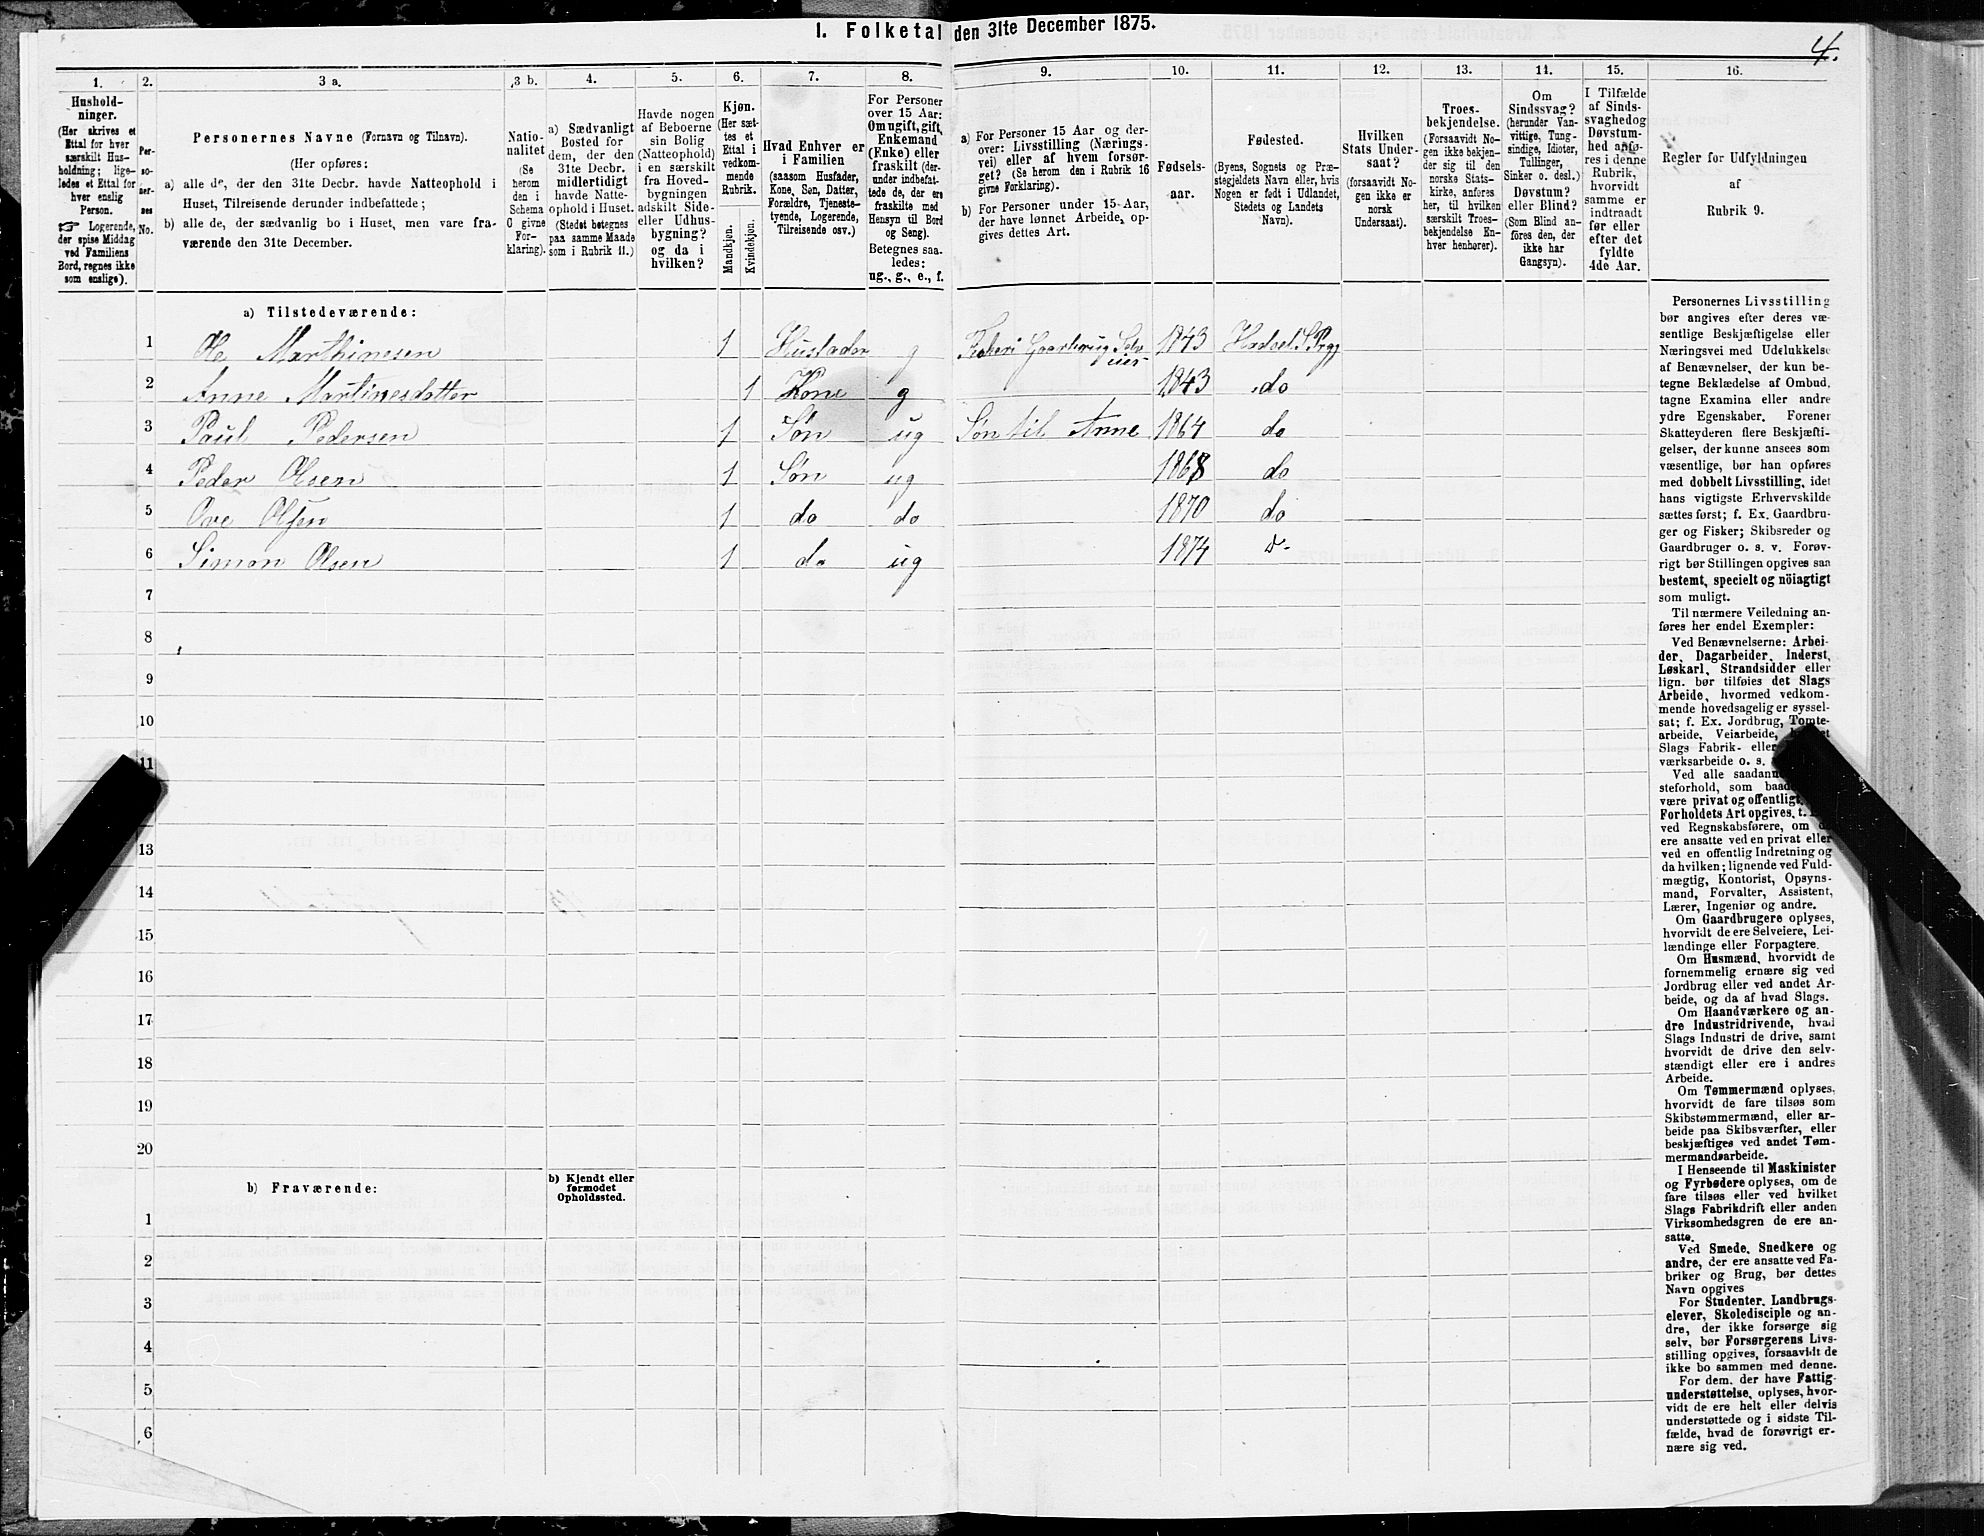 I. Folketal den 31te December 1875.
4.
1.
Hushold-
ninger.
(Her skrives et
Ettal for hver
særskilt Hus-
holdning; lige-
ledes et Ettal for
hver enslig
Person.
☞ Logerende,
der spise Middag
ved Familiens
Bord, regnes ikke
som enslige).
2.
Per-
so-
ner-
nes
No.
3 a.
Personernes Navne (Fornavn og Tilnavn).
(Her opføres:
a) alle de, der den 31te Decbr. havde Natteophold i
Huset, Tilreisende derunder indbefattede;
b) alle de, der sædvanlig bo i Huset, men vare fra-
værende den 31te December.
3 b.
Natio-
nalitet
(Se
herom
den i
Schema
C givne
For-
klaring).
4.
a) Sædvanligt
Bosted for
dem, der den
31te Decbr.
midlertidigt
havde Natte-
ophold i Huset.
(Stedet betegnes
paa samme Maade
som i Rubrik 11.)
5.
Havde nogen
af Beboerne
sin Bolig
(Natteophold)
i en særskilt
fra Hoved-
bygningen
adskilt Side-
eller Udhus-
bygning?
og da i
hvilken?
6.
Kjøn.
(Her sæt-
tes et
Ettal i
vedkom-
mende
Rubrik.
Mandkjøn.
Kvindekjøn.
7.
Hvad Enhver er
i Familien
(saasom Husfader,
Kone, Søn, Datter,
Forældre, Tjeneste-
tyende, Logerende,
Tilreisende osv.)
8.
For Personer
over 15 Aar:
Om ugift, gift,
Enkemand
(Enke) eller
fraskilt (der-
under indbefat-
tede de, der ere
fraskilte med
Hensyn til Bord
og Seng).
Betegnes saa-
ledes:
ug., g., e., f.
9.
a) For Personer 15 Aar og der-
over: Livsstilling (Nærings-
vei) eller af hvem forsør-
get? (Se herom den i Rubrik 16
givne Forklaring).
b) For Personer under 15-Aar,
der have lønnet Arbeide, op-
gives dettes Art.
10.
Fødsels-
aar.
11.
Fødested.
(Byens, Sognets og Præ-
stegjeldets Navn eller, hvis
Nogen er født i Udlandet,
Stedets og Landets
Navn).
12.
Hvilken
Stats Under-
saat?
(forsaavidt No-
gen ikke er
norsk
Undersaat).
13.
Troes-
bekjendelse.
(Forsaavidt No-
gen ikke bekjen-
der sig til den
norske Stats-
kirke, anføres
her, til hvilken
særskilt Troes-
bekjendelse En-
hver henhører).
14.
Om
Sindssvag?
(herunder Van-
vittige, Tung-
sindige, Idioter,
Tullinger,
Sinker o. desl.)
Døvstum?
eller Blind?
(Som Blind an-
føres den, der
ikke har
Gangsyn).
15.
I Tilfælde
af Sinds-
svaghed og
Døvstum-
hed anfø-
res i denne
Rubrik,
hvorvidt
samme er
indtraadt
før eller
efter det
fyldte
4de Aar.
16.
Regler for Udfyldningen
af
Rubrik 9.
a) Tilstedeværende:
1 Ole Marthinesen 1 Husfader g Fiskeri Gaarbrug Selv 1843 Hadsel
2 Anne Martinesdatter 1 Kone g 1843 do
3 Paul Pedersen 1 Søn ug Søn til Anne 1864 do
4 Peder Olsen 1 Søn ug 1868 do
5 Ove Olsen 1 do do 1870 do
6 Simon Olsen 1 do ug 1874
7
8
9
10
11
13
14
15
16
17
18
19
20
b) Fraværende:
b) Kjendt eller
formodet
Opholdssted.
1
2
3
4
5
6
Personernes Livsstilling
bør angives efter deres væ-
sentlige Beskjæftigelse eller
Næringsvei med Udelukkelse
af Benævnelser, der kun be-
tegne Beklædelse af Ombud,
tagne Examina eller andre
ydre Egenskaber. Forener
Skatteyderen flere Beskjæfti-
gelser, der kunne ansees som
væsentlige, bør han opføres
med dobbelt Livsstilling, idet
hans vigtigste Erhvervskilde
sættes først; f. Ex. Gaardbru-
ger og Fisker; Skibsreder og
Gaardbruger o. s. v. Forøv-
rigt bør Stillingen opgives saa
bestemt, specielt og nöiagtigt
som muligt.
Til nærmere Veiledning an-
føres her endel Exempler:
Ved Benævnelserne: Arbei-
der, Dagarbeider, Inderst,
Løskarl, Strandsidder eller
lign. bør tilføies det Slags
Arbeide, hvormed vedkom-
mende hovedsagelig er syssel-
sat; f. Ex. Jordbrug, Tomte-
arbeide, Veiarbeide,
Slags Fabrik- eller
værksarbeide o. s.
Ved alle saadanne
steforhold, som
være privat og offentligt,
Forholdets Art opgives, t.
ved Regnskabsførere, om
ere ansatte ved en privat eller
ved en offentlig Indretning og
da hvilken; lignende ved Fuld-
mægtig, Kontorist, Opsyns-
mand, Forvalter, Assistent,
Lærer, Ingeniør og andre.
Om Gaardbrugere oplyses,
hvorvidt de ere Selveiere, Lei-
lændinge eller Forpagtere.
Om Husmænd, hvorvidt de
fornemmelig ernære sig ved
Jordbrug eller ved andet Ar-
beide, og da af hvad Slags.
Om Haandværkere og an-
dre Industridrivende, hvad
Slags Industri de drive, samt
hvorvidt de drive den selv-
stændigt eller ere i andres
Arbeide.
Om Tømmermænd oplyses,
hvorvidt de fare tilsøs som
Skibstømmermænd, eller ar-
beide paa Skibsværfter, eller
beskjæftiges ved andet Tøm-
mermandsarbeide.
I Henseende til Maskinister
og Fyrbødere oplyses, om de
fare tilsøs eller ved hvilket
Slags Fabrikdrift eller anden
Virksomhedsgren de ere an-
satte.
Ved Smede, Snedkere og
andre, der ere ansatte ved Fa-
briker og Brug, bør dettes
Navn opgives
For Studenter, Landbrugs-
elever, Skoledisciple og an-
dre, der ikke forsørge sig
selv, bør Forsørgerens Livs-
stilling opgives, forsaavidt de
ikke bo sammen med denne.
For dem, der have Fattig-
understøttelse, oplyses, hvor-
vidt de ere helt eller delvis
understøttede og i sidste Til-
fælde, hvad de forøvrigt er-
nære sig ved.